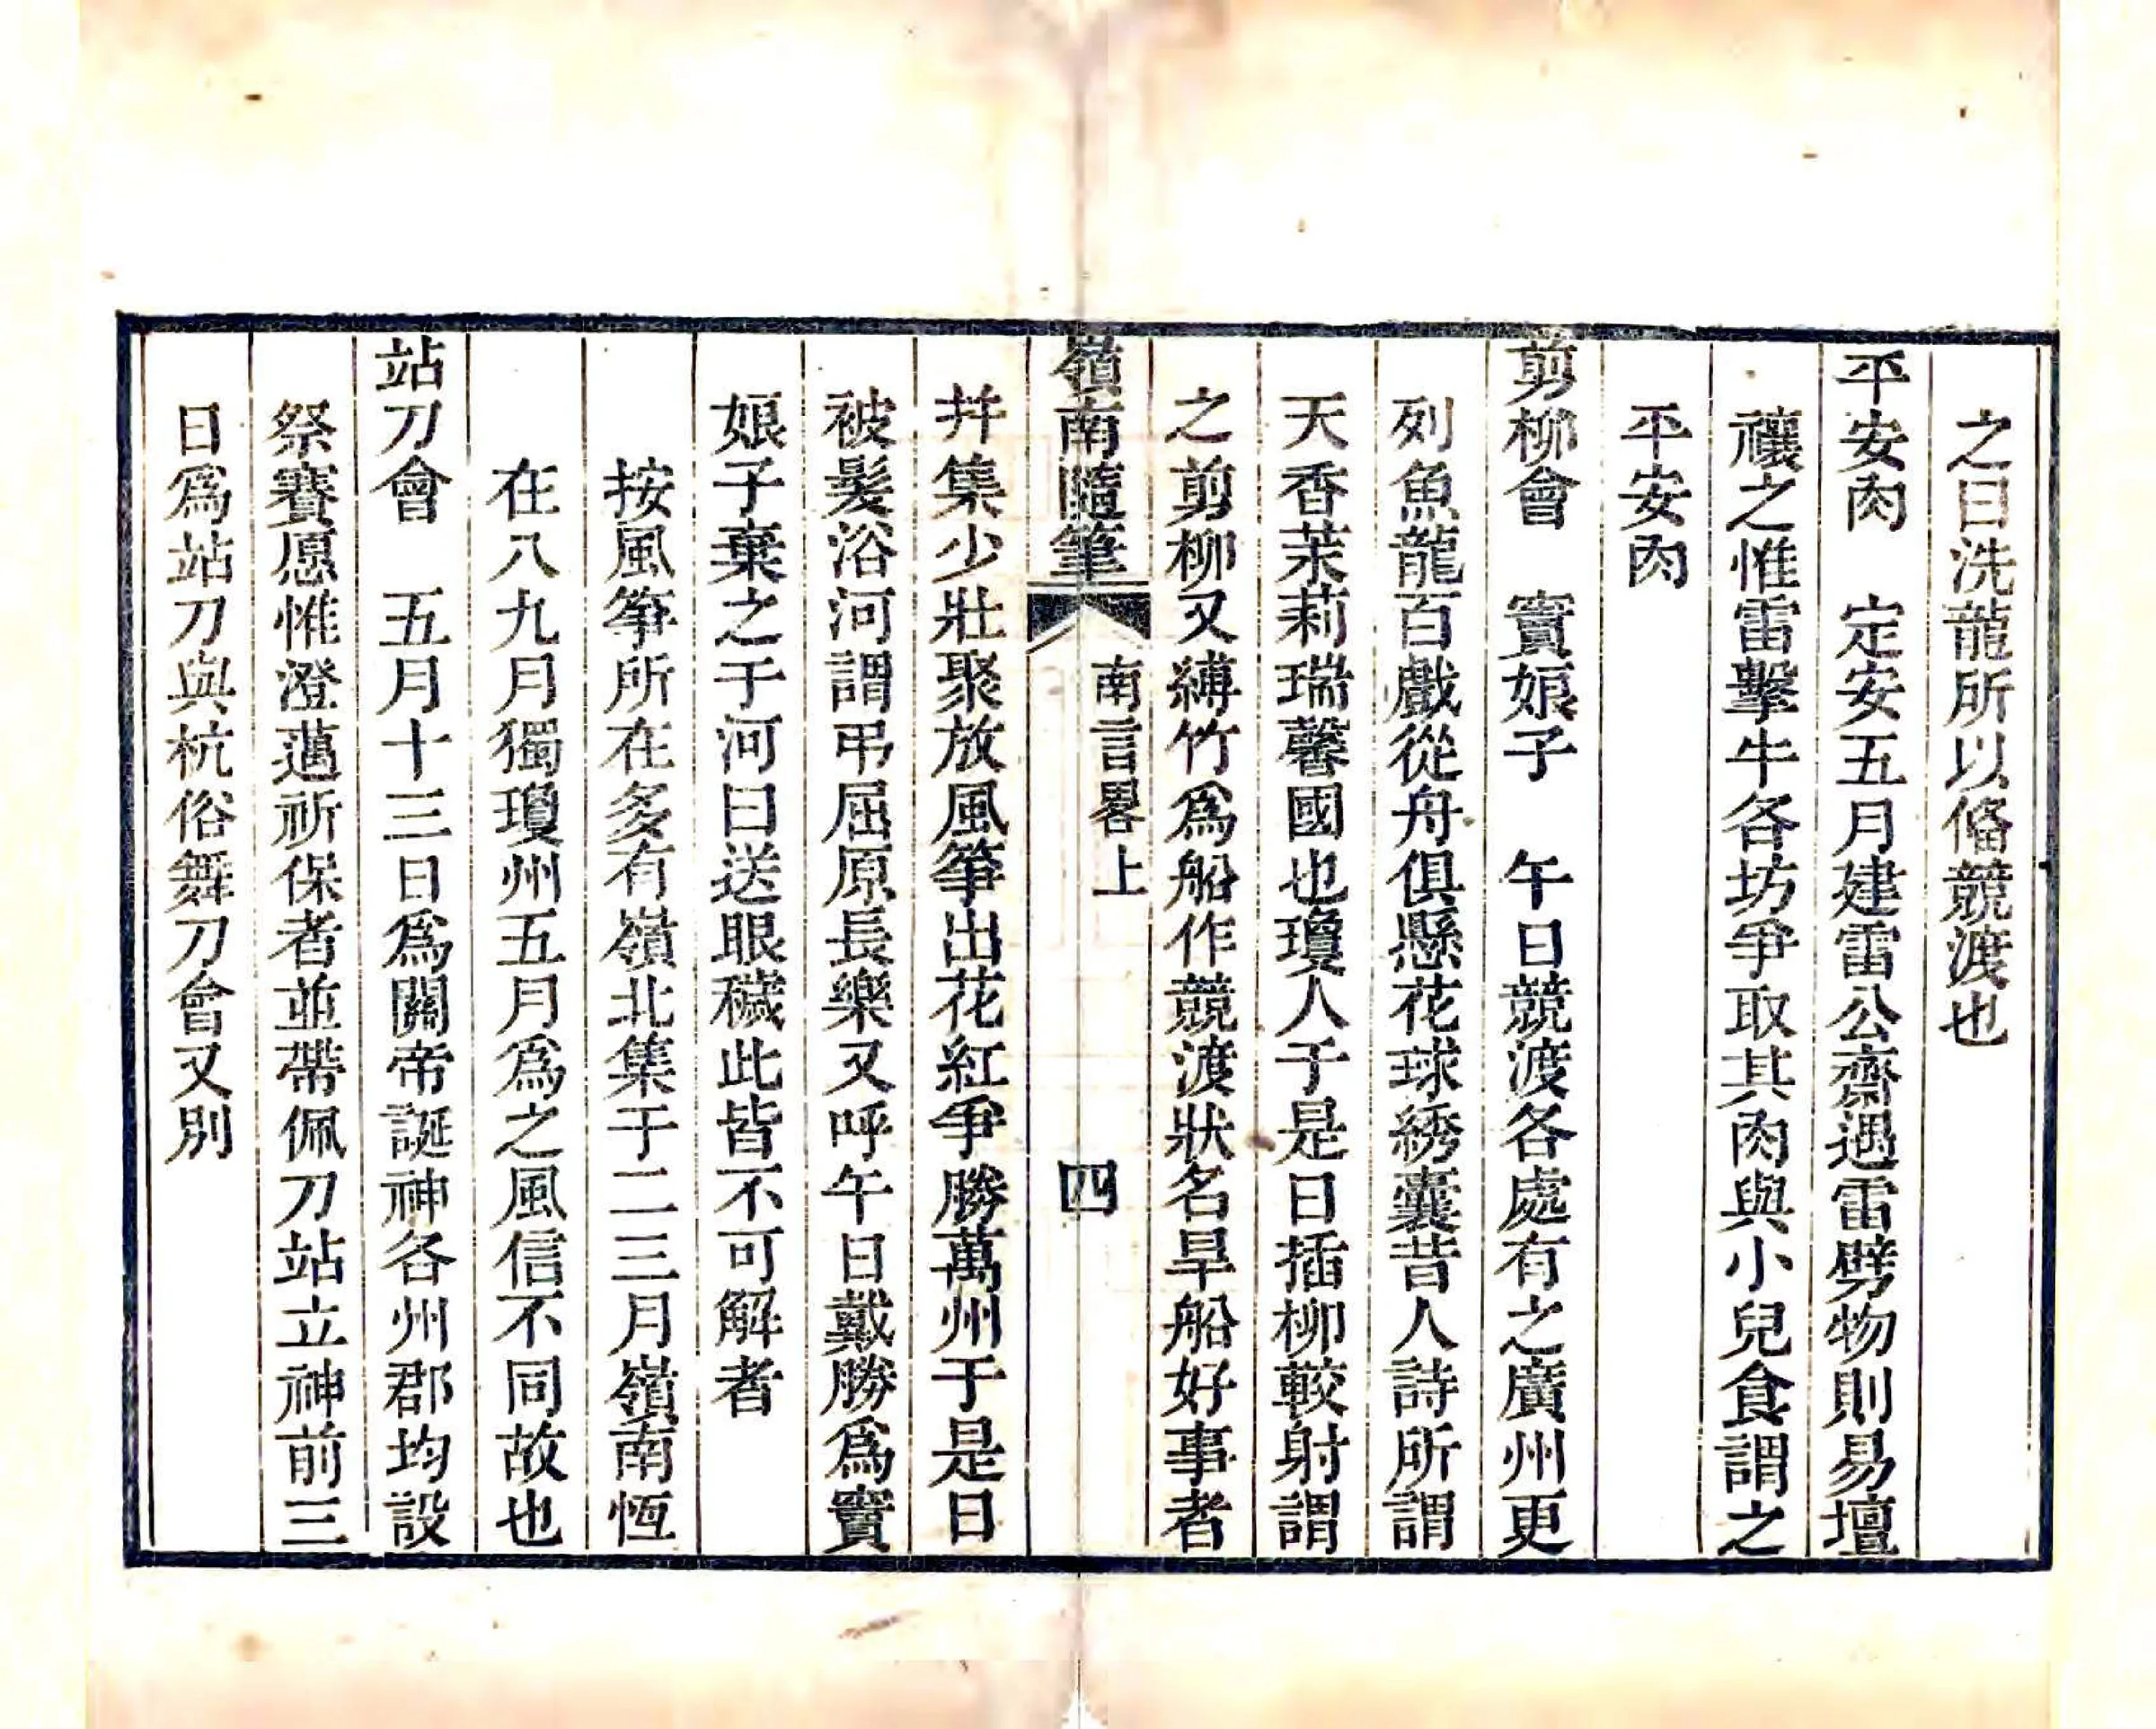 之曰洗龍所以俻競渡也
平安肉　定安五月建雷公齋遇雷劈物則易壇
禳之惟雷擊牛各坊爭取其肉與小兒食謂之
平安肉
剪柳會　竇娘子　午日競渡各處有之廣州更
列魚龍百戲從舟俱懸花球綉囊昔人詩所謂
天香茉莉瑞馨國也瓊人于是日插柳較射謂
之剪柳又縛竹爲船作競渡狀名旱船好事者
嶺南隨筆
南言畧上
四
幷集少壯聚放風筝出花紅爭勝萬州于是日
被髮浴河謂弔屈原長樂又呼午日戴勝爲竇
娘子棄之于河曰送眼穢此皆不可解者
按風筝所在多有嶺北集于二三月嶺南恆
在八九月獨瓊州五月爲之風信不同故也
站刀會　五月十三日爲關帝誕神各州郡均設
祭賽愿惟澄邁祈保者並帶佩刀站立神前三
日爲站刀與杭俗舞刀會又別